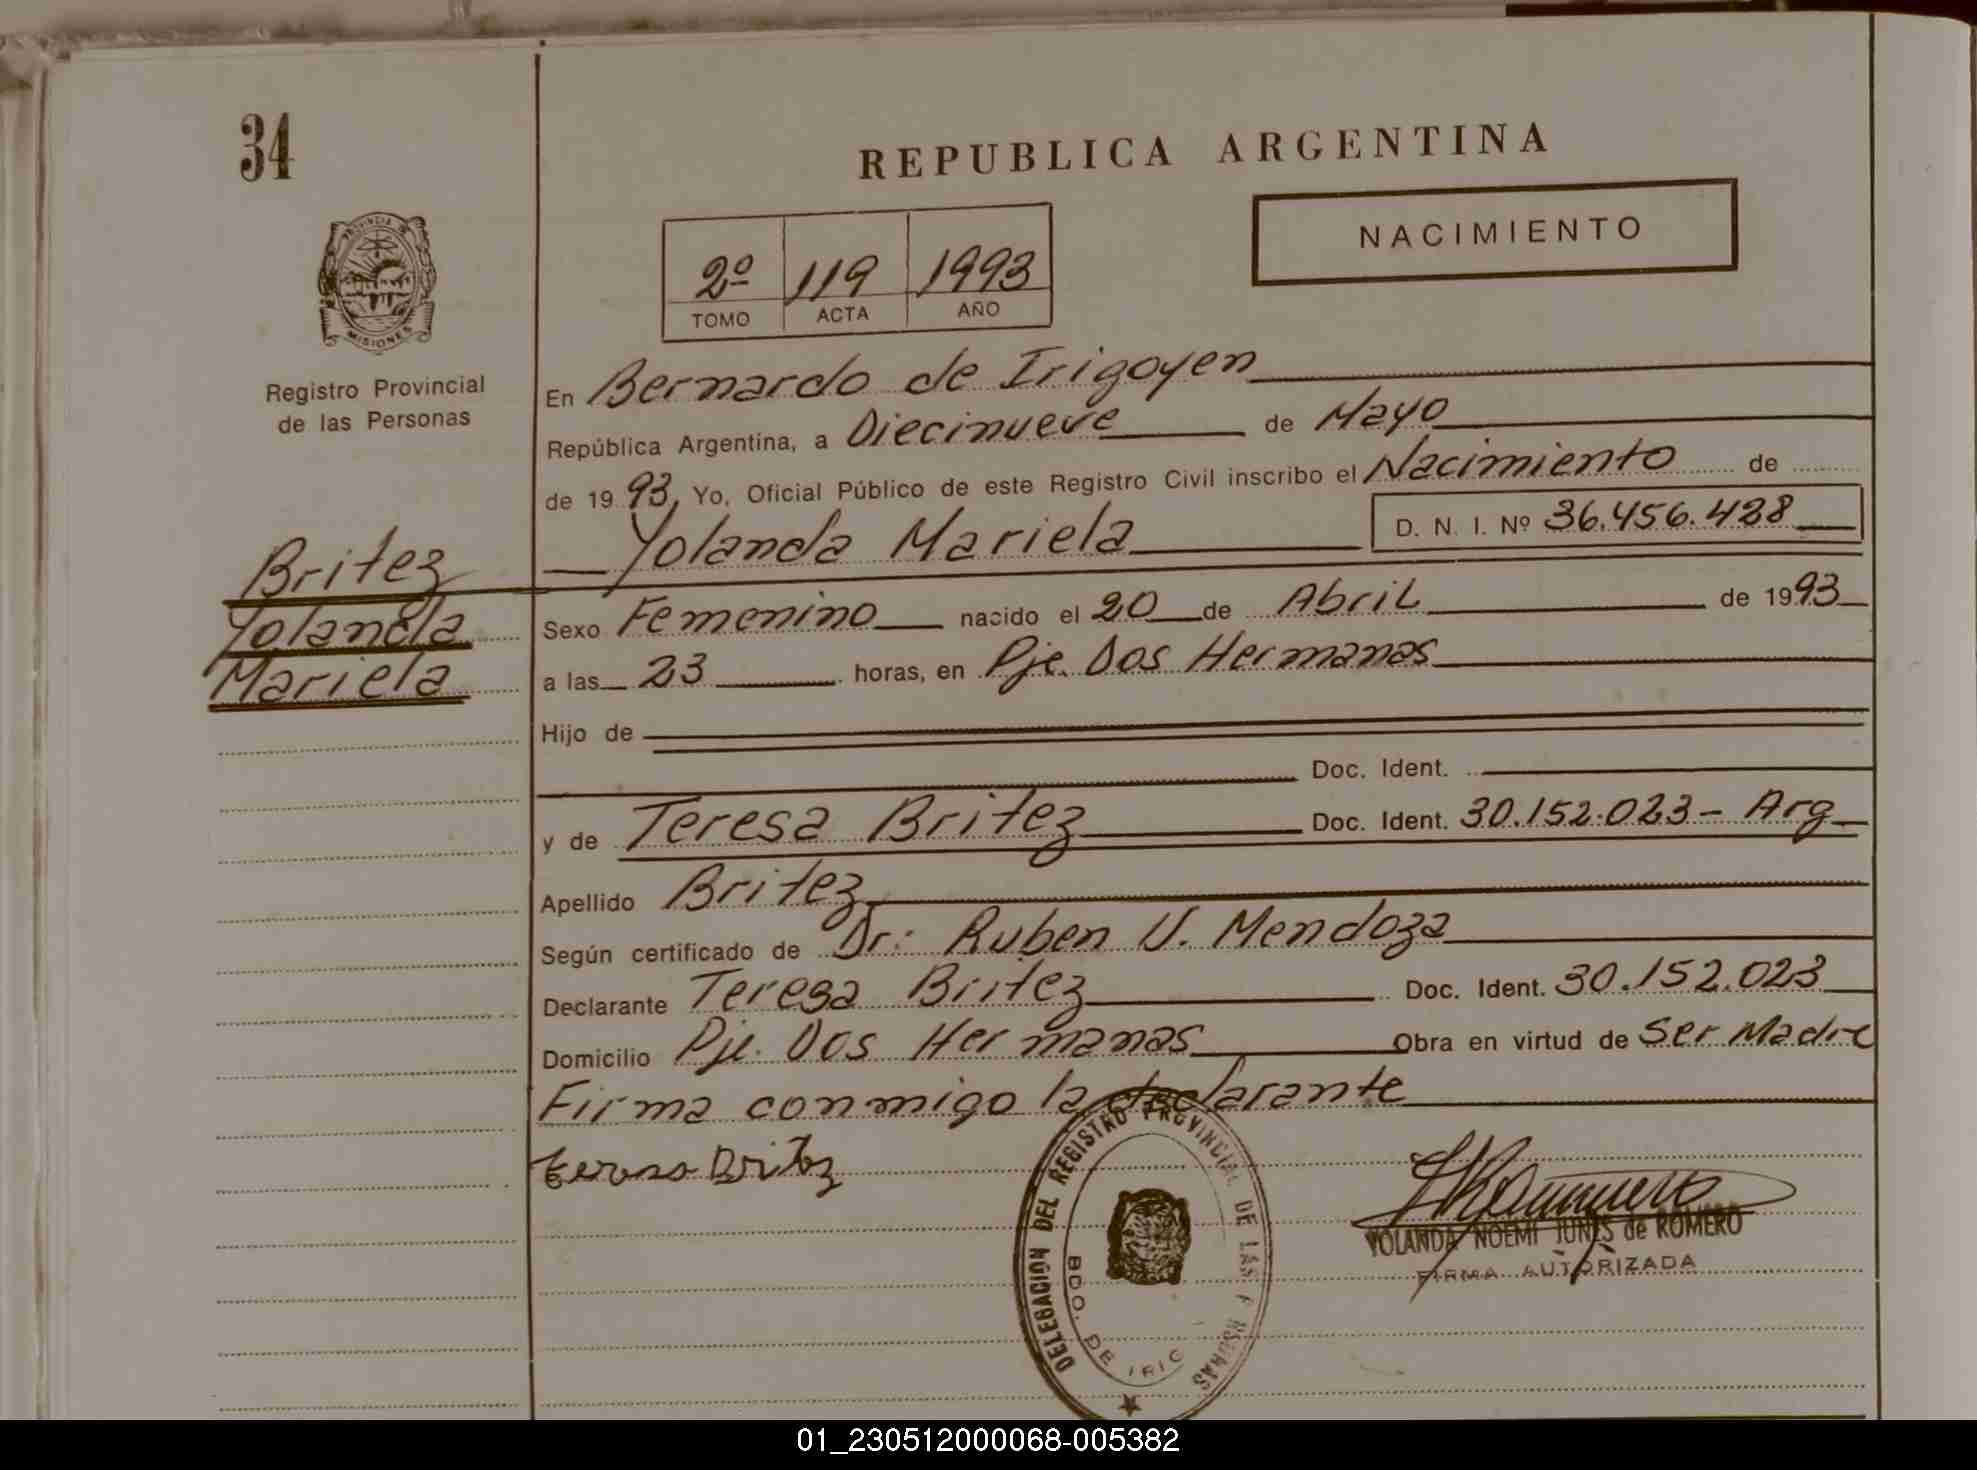 34
REPUBLICA ARGENTINA
NACIMIENTO
2º 119 1993
TOMO ACTA AÑO
PROVINCIA DE
MISIONES
Registro Provincial
de las Personas
Britez
Yolanda
Mariela
En Bernardo de Irigoyen
República Argentina, a Diecinueve de Mayo
de 1993, Yo, Oficial Público de este Registro Civil inscribo el Nacimiento de
Yolanda Mariela D. N. I. Nº 36.456.428
Sexo Femenino nacido el 20 de Abril de 1993
a las 23 horas, en Pje. Dos Hermanas
Hijo de
Doc. Ident.
y de Teresa Britez Doc. Ident. 30.152.023 - Arg
Apellido Britez
Según certificado de Dr: Ruben V. Mendoza
Declarante Teresa Britez Doc. Ident. 30.152.023
Domicilio Pje. Dos Hermanas Obra en virtud de Ser Madre
Firma conmigo la declarante
teresa Britez
DELEGACION DEL REGISTRO PROVINCIAL DE LAS
BDO. DE IRIG
YOLANDA NOEMI JUNES de ROMERO
FIRMA AUTORIZADA
01_230512000068-005382